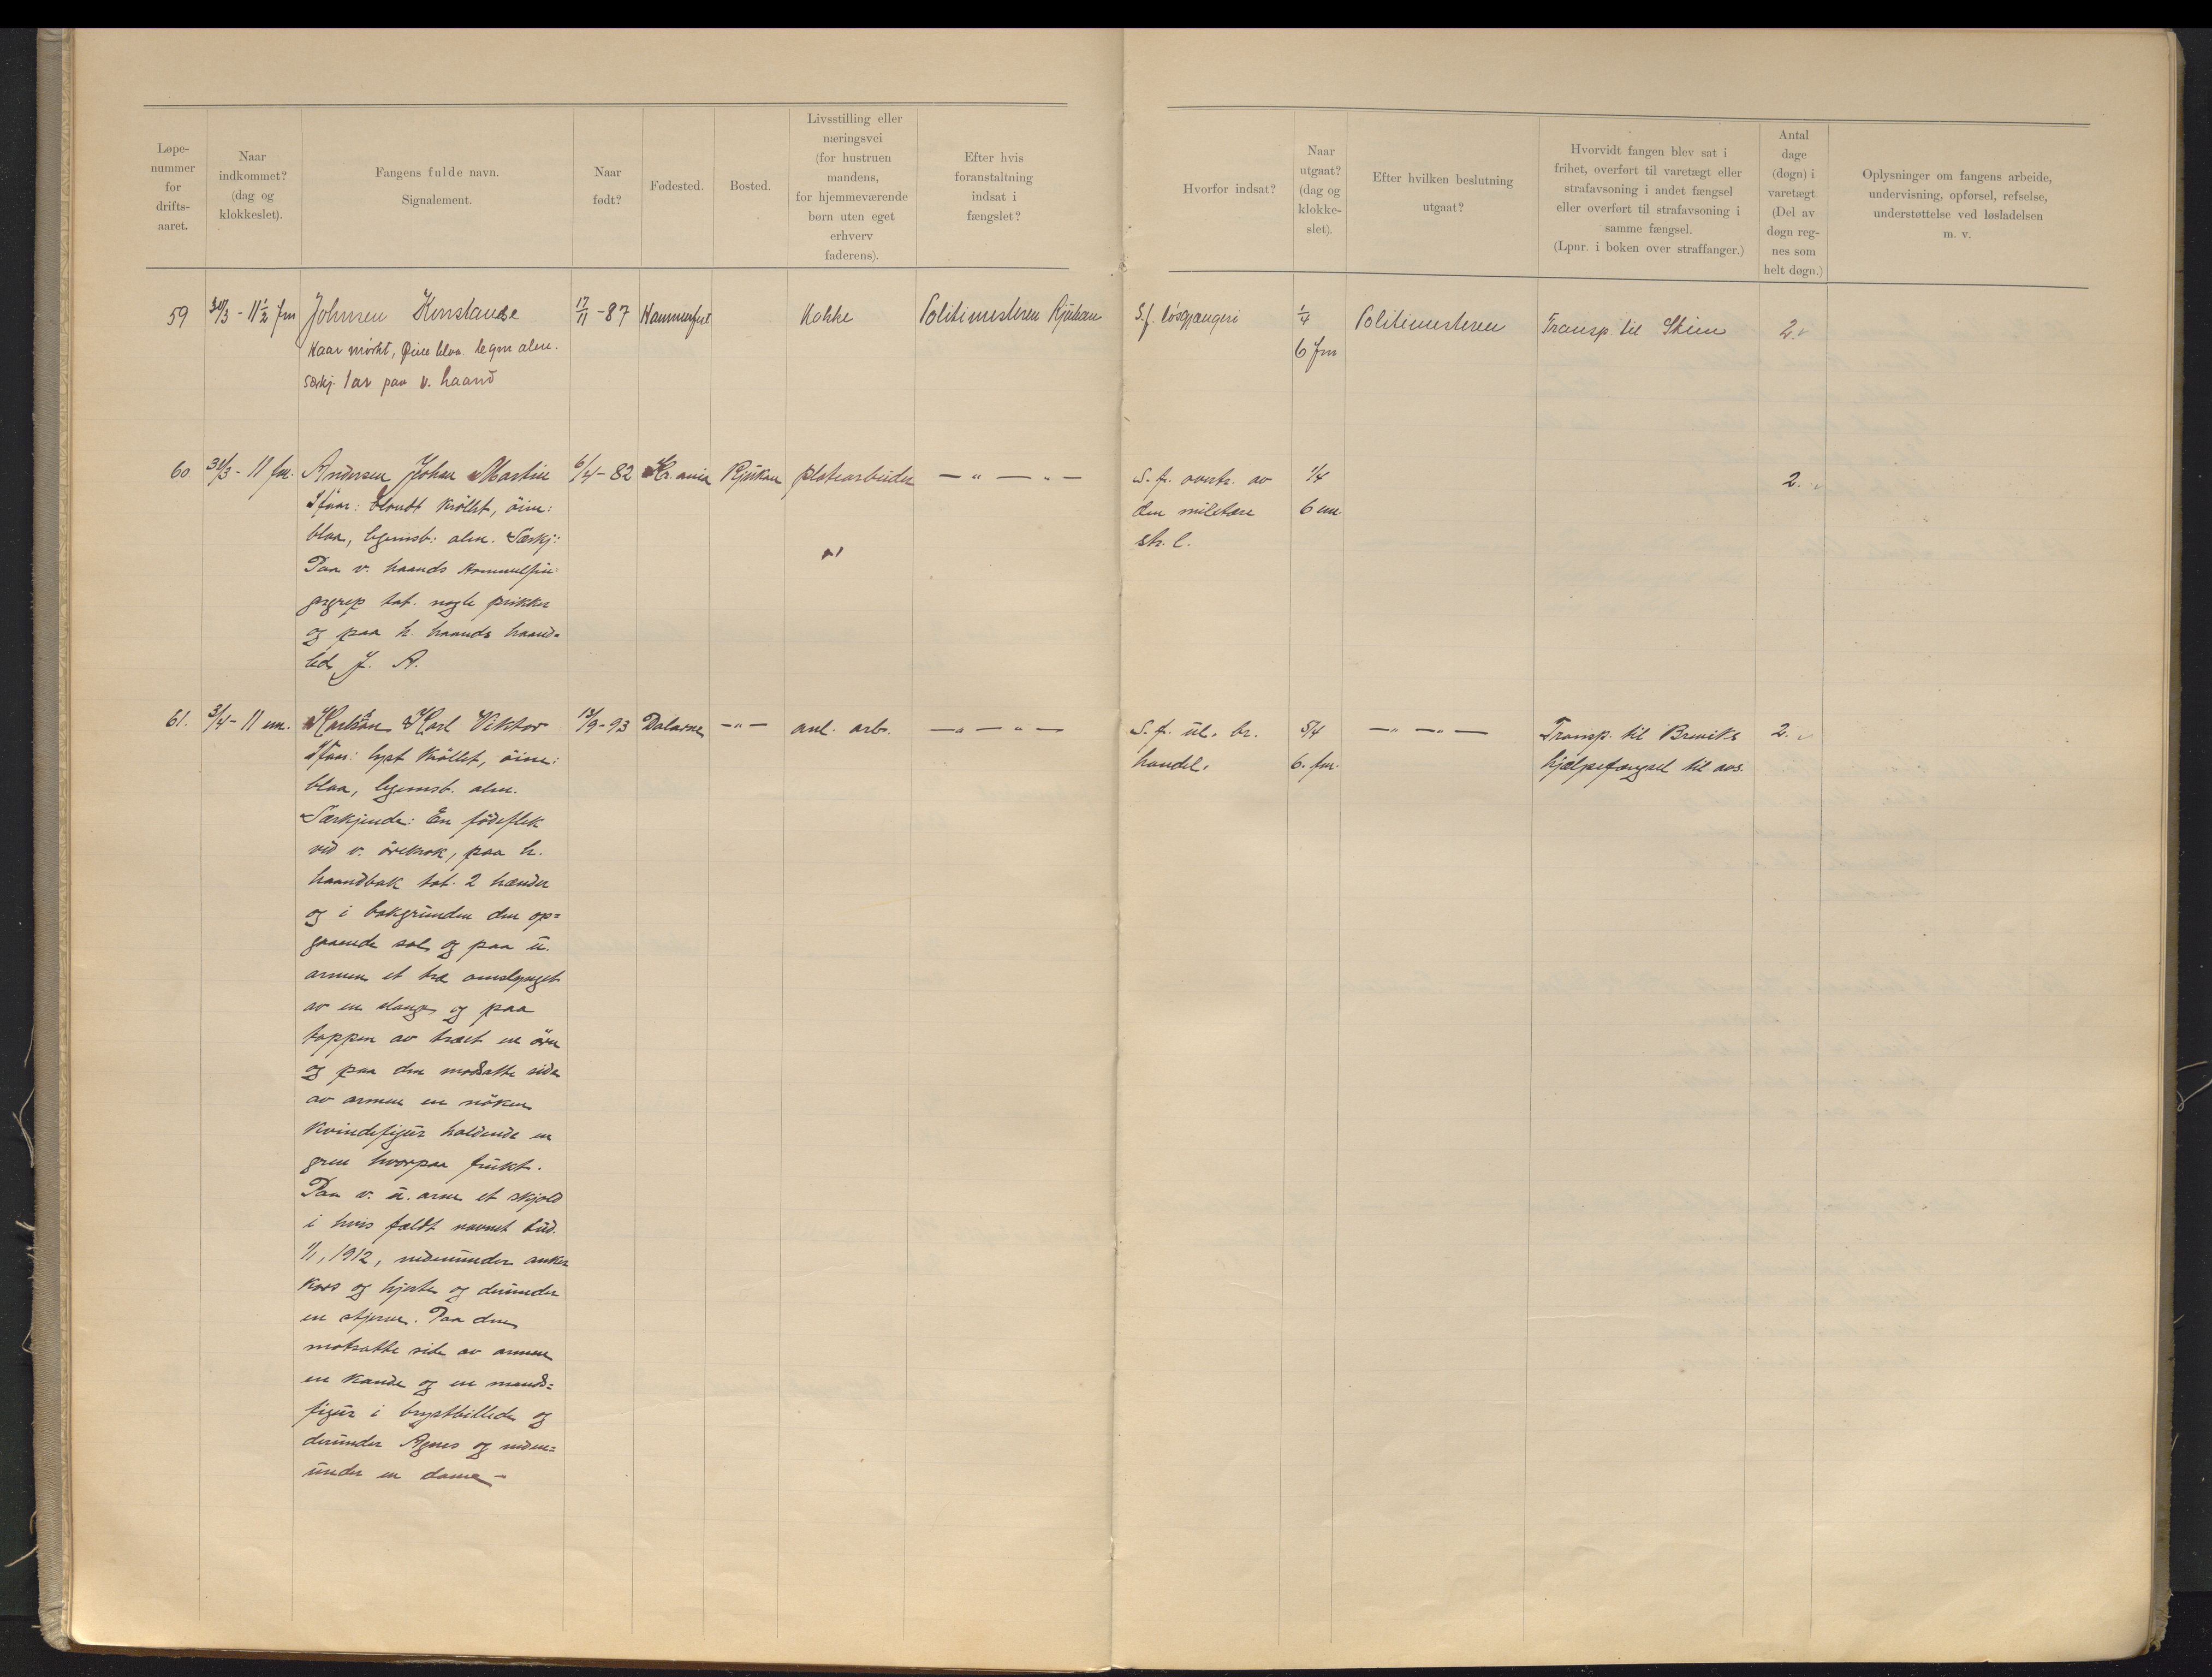 Løpe-
nummer
for
drifts-
aaret.
Naar
indkommet?
(dag og
klokkeslet).
Fangens fulde navn.
Signalement.
Naar
født?
Fødested.
Bosted.
Livsstilling eller
næringsvei
(for hustruen
mandens,
for hjemmeværende
børn uten eget
erhverv
faderens).
Efter hvis
foranstaltning
indsat i
fængslet?
Hvorfor indsat?
Naar
utgaat?
(dag og
klokke-
slet).
Efter hvilken beslutning
utgaat?
Hvorvidt fangen blev sat i
frihet, overført til varetægt eller
strafavsoning i andet fængsel
eller overført til strafavsoning i
samme fængsel.
(Lpnr. i boken over straffanger.)
Antal
dage
(døgn) i
varetægt
(Del av
døgn reg-
nes som
helt døgn.)
Oplysninger om fangens arbeide,
undervisning, opførsel, refselse,
understøttelse ved løsladelsen
m. v.
59 - 11½ fm Johnsen Konstanse 17/11 - 87 Hammerfest Kokke Politimesteren Rjukan S.f. løsgjængeri 1/4 Politimesteren Transp. til Skien 2.
Haar mørkt, Øine blaa. legm alm. 6 fm
særkj. 1 ar paa v. haand
60 31/3 - 11 fm. Andersen Johan Martin 6/4 - 82 Kr.ania Rjukan platearbeider — " — " — S. f. overtr. av 1/4 2.
Haar: blondt krøllet, öine: den militære 6 em.
blaa, legemsb.: alm. Særkj: str. l.
Paa v. haands tommelfin-
gergrep tat. nogle prikker
og paa h. haands haand-
led J. A.
61. 3/4 - 11 em. Karlsson Karl Viktor 13/9 - 93 Dalarne — " — anl. arb. — " — " — S. f. ul. br. 5/4 — " — " — Transp. til Breviks 2.
Haar: lyst krøllet, öine: handel. 6. fm. hjelpefængsel til avs.
blaa, legemsb. alm.
Særkjende: En födeflek
vid v. örekrok, paa h.
haandbak tat. 2 hænder
og i bakgrunden den op=
gaaende sol og paa u.
armen et træ omslynget
av en slange og paa
toppen av træet en örn
og paa den modsatte side
av armen en nöken
kvindefigur holdende en
gren hvorpaa frukt.
Paa v. u. arm et skjold
i hvis fældt navnet Lud.
1/1, 1912, nedenunder anker
kors og hjerte og derunder
en stjerne. Paa den
motsatte side av armen
en kande og en mands=
figur i brystbillede og
derunder Agnes og neden=
under en dame –